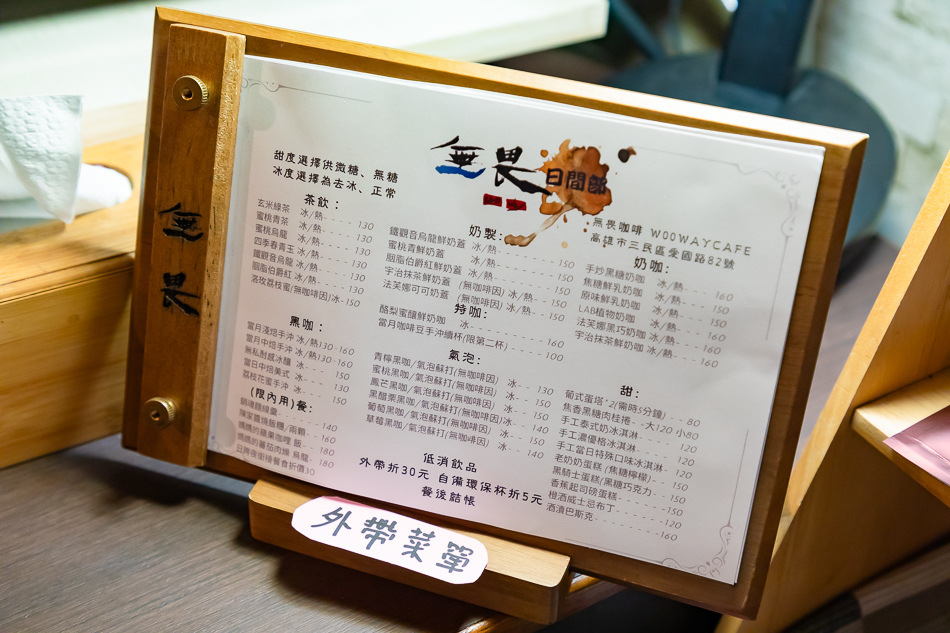 無畏
無畏日間部
甜度選擇供微糖、無糖
冰度選擇為去冰、正常
無畏咖啡 WOOWAYCAFE
高雄市三民區愛國路82號
茶飲：
玄米綠茶 冰/熱 130
蜜桃青茶 冰/熱 130
蜜桃烏龍 冰/熱 130
四季春青玉 冰/熱 130
鐵觀音烏龍 冰/熱 130
胭脂伯爵紅 冰/熱 130
洛玫荔枝蜜/(無咖啡因)冰 150
黑咖：
當月淺焙手沖 冰/熱130 160
當月中焙手沖 冰/熱130 160
無私酎感冰釀 冰 160
當日中焙美式 冰 130
荔枝花蜜手沖 冰 150
(限內用)餐：
140
160
180
180
奶製：
鐵觀音烏龍鮮奶蓋 冰/熱 150
蜜桃青鮮奶蓋 冰/熱 150
胭脂伯爵紅鮮奶蓋 冰/熱 150
宇治抹茶鮮奶蓋 (無咖啡因) 冰/熱 150
法芙娜可可奶蓋 (無咖啡因) 冰/熱 150
特咖：
酪梨蜜釀鮮奶咖 冰 160
當月咖啡豆手沖續杯(限第二杯) 100
氣泡：
青檸黑咖/氣泡蘇打(無咖啡因) 冰 130
蜜桃黑咖/氣泡蘇打(無咖啡因) 冰 140
鳳芒黑咖/氣泡蘇打(無咖啡因) 冰 140
黑醋栗黑咖/氣泡蘇打(無咖啡因) 冰 150
葡萄黑咖/氣泡蘇打(無咖啡因) 冰 150
草莓黑咖/氣泡蘇打(無咖啡因) 冰 140
低消飲品
外帶折30元 自備環保杯折5元
餐後結帳
奶咖：
手炒黑糖奶咖 冰/熱 160
焦糖鮮乳奶咖 冰/熱 150
原味鮮乳奶咖 冰/熱 150
LAB植物奶咖 冰/熱 150
法芙娜黑巧奶咖 冰/熱 160
宇治抹茶鮮奶咖 冰/熱 160
甜：
葡式蛋塔*2(需時5分鐘) 80
焦香黑糖肉桂捲 大120 小80
手工泰式奶冰淇淋 120
手工濃優格冰淇淋 120
手工當日特殊口味冰淇淋 120
老奶奶蛋糕 (焦糖檸檬) 150
黑騎士蛋糕 (黑糖巧克力) 150
香蕉起司磅蛋糕 150
橙酒威士忌布丁 120
酒漬巴斯克 160
外帶菜單